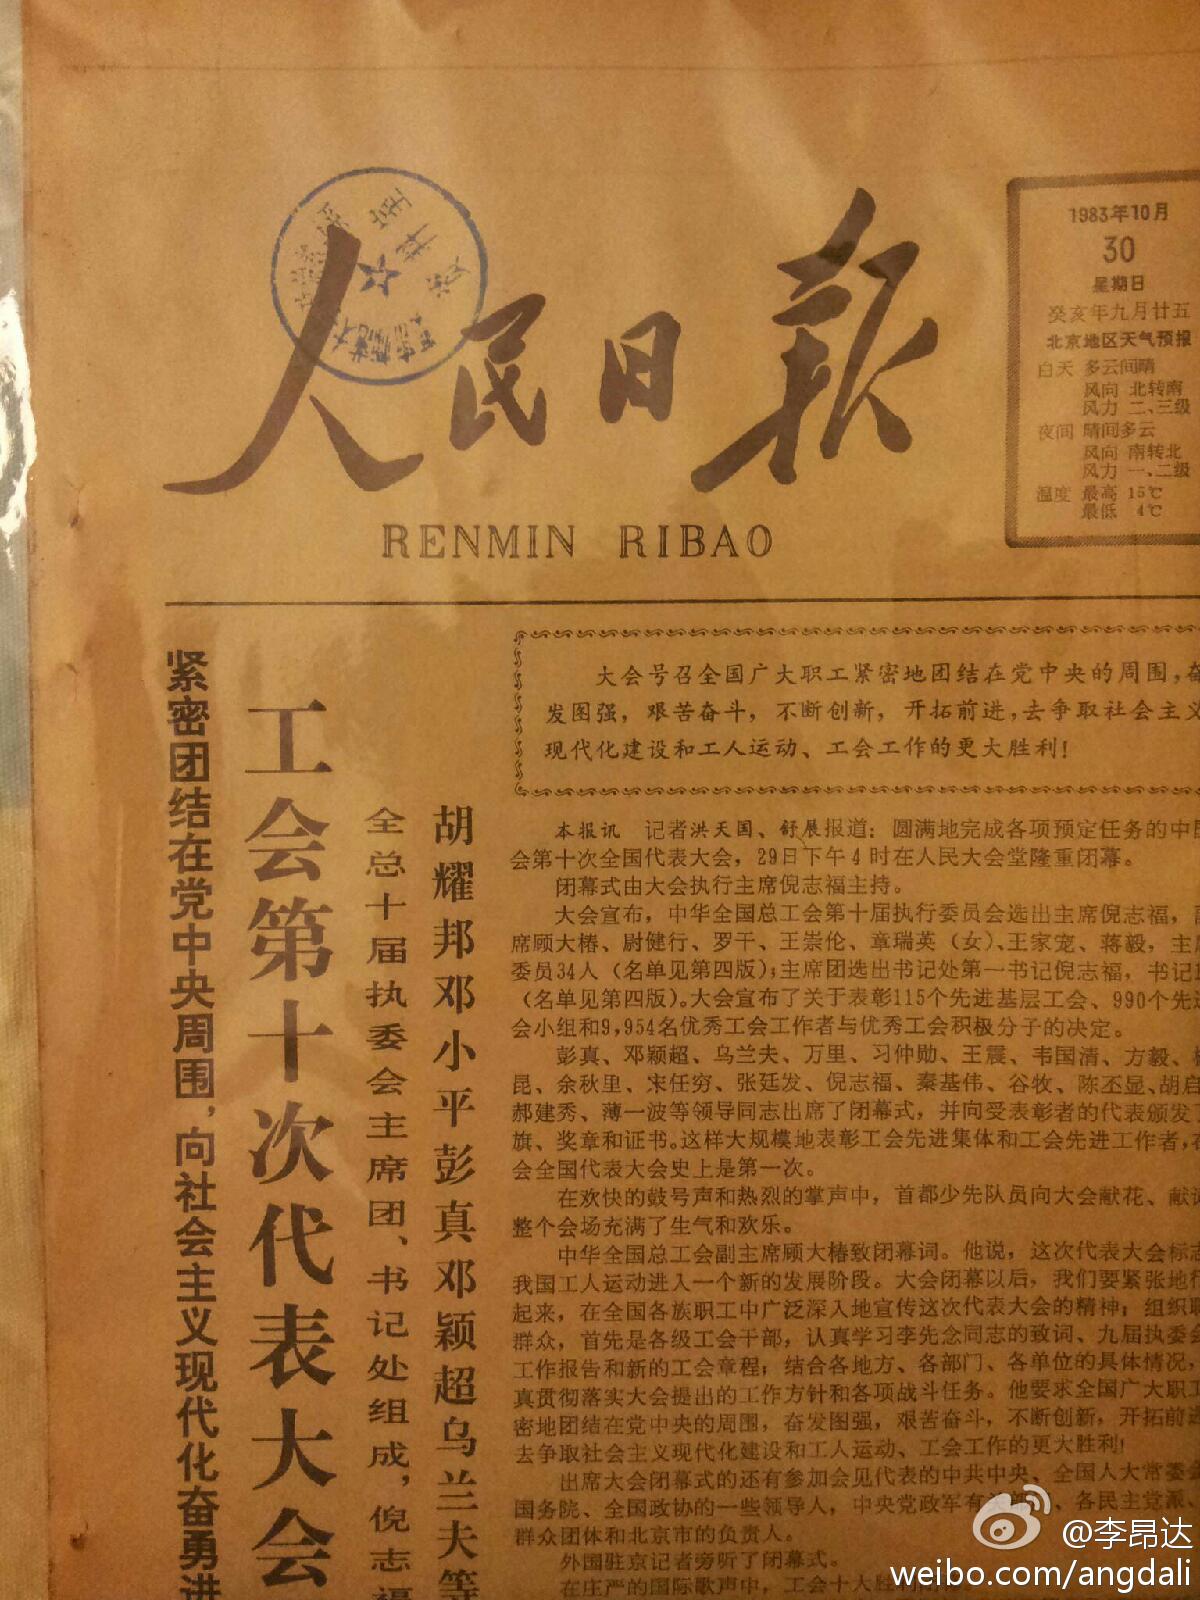 人民日报
RENMIN RIBAO
1983年10月
30
星期日
癸亥年九月廿五
北京地区天气预报
白天 多云间晴
风向 北转南
风力 二、三级
夜间 晴间多云
风向 南转北
风力 一、二级
温度 最高 15℃
最低 4℃
紧密团结在党中央周围，向社会主义现代化奋勇进
工会第十次代表大会
全总十届执委会主席团、书记处组成，倪志福
胡耀邦邓小平彭真邓颖超乌兰夫等
大会号召全国广大职工紧密地团结在党中央的周围，奋
发图强，艰苦奋斗，不断创新，开拓前进，去争取社会主义
现代化建设和工人运动、工会工作的更大胜利！
本报讯 记者洪天国、舒展报道：圆满地完成各项预定任务的中国
会第十次全国代表大会，29日下午4时在人民大会堂隆重闭幕。
闭幕式由大会执行主席倪志福主持。
大会宣布，中华全国总工会第十届执行委员会选出主席倪志福，副
席顾大椿、尉健行、罗干、王崇伦、章瑞英（女）、王家宠、蒋毅，主席
委员34人（名单见第四版）；主席团选出书记处第一书记倪志福，书记
（名单见第四版）。大会宣布了关于表彰115个先进基层工会、990个先进
会小组和9,954名优秀工会工作者与优秀工会积极分子的决定。
彭真、邓颖超、乌兰夫、万里、习仲勋、王震、韦国清、方毅、杨
昆、余秋里、宋任穷、张廷发、倪志福、秦基伟、谷牧、陈丕显、胡启
郝建秀、薄一波等领导同志出席了闭幕式，并向受表彰者的代表颁发了
旗、奖章和证书。这样大规模地表彰工会先进集体和工会先进工作者，在
会全国代表大会史上是第一次。
在欢快的鼓号声和热烈的掌声中，首都少先队员向大会献花、献
整个会场充满了生气和欢乐。
中华全国总工会副主席顾大椿致闭幕词。他说，这次代表大会标志
我国工人运动进入一个新的发展阶段。大会闭幕以后，我们要紧张地行
起来，在全国各族职工中广泛深入地宣传这次代表大会的精神；组织职
群众，首先是各级工会干部，认真学习李先念同志的致词、九届执委会
工作报告和新的工会章程；结合各地方、各部门、各单位的具体情况，
真贯彻落实大会提出的工作方针和各项战斗任务。他要求全国广大职工
密地团结在党中央的周围，奋发图强，艰苦奋斗，不断创新，开拓前进
去争取社会主义现代化建设和工人运动、工会工作的更大胜利！
出席大会闭幕式的还有参加会见代表的中共中央、全国人大常委会
国务院、全国政协的一些领导人，中央党政军有关部门、各民主党派、
群众团体和北京市的负责人。
外国驻京记者旁听了闭幕式。
在庄严的国际歌声中，工会十大胜利闭幕
@李昂达
weibo.com/angdali